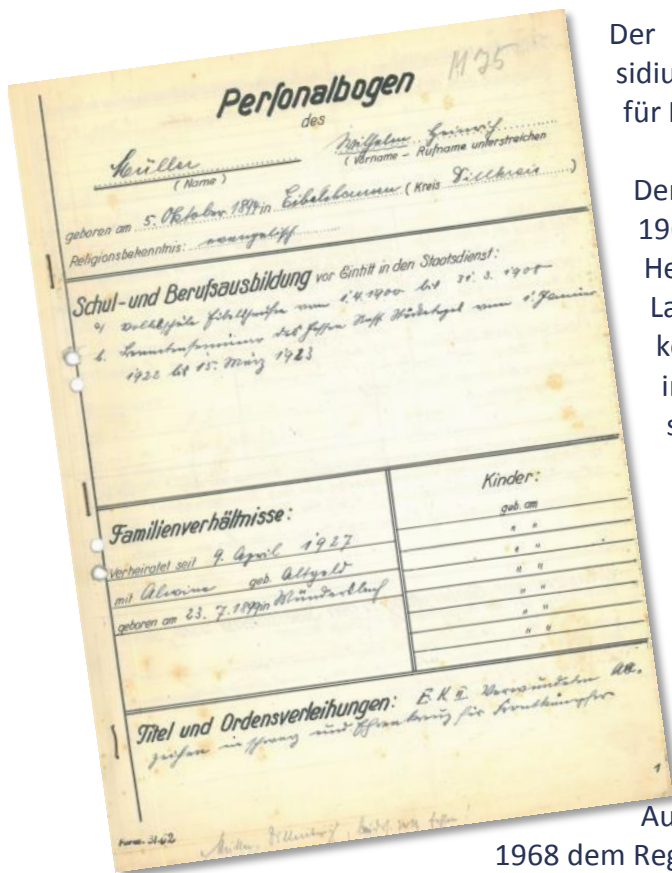 Personalbogen M 25
des
Müller Wilhelm Heinrich
(Name) (Vorname – Rufname unterstreichen
geboren am 5. Oktober 1894 in (Kreis Dillkreis)
Religionsbekenntnis: evangelisch
Schul- und Berufsausbildung vor Eintritt in den Staatsdienst:
a) Volksschule vom 1.4.1900 bis 31. 3. 1908
b. des vom 1. Januar
1922 bis 15. März 1923
Familienverhältnisse:
Verheiratet seit 9. April 1927
mit Alwine geb. Altgeld
geboren am 23. 7. 1899 in
Kinder:
geb. am
" "
" "
" "
" "
" "
" "
" "
Titel und Ordensverleihungen: E.K. II. Verwundeten Ab.
zeichen in schwarz und Ehrenkreuz für Frontkämpfer
1
Müller, Dillenburg,
Der
sidiu
für
Der
196
He
La
k
i
s
Au
1968 dem Reg